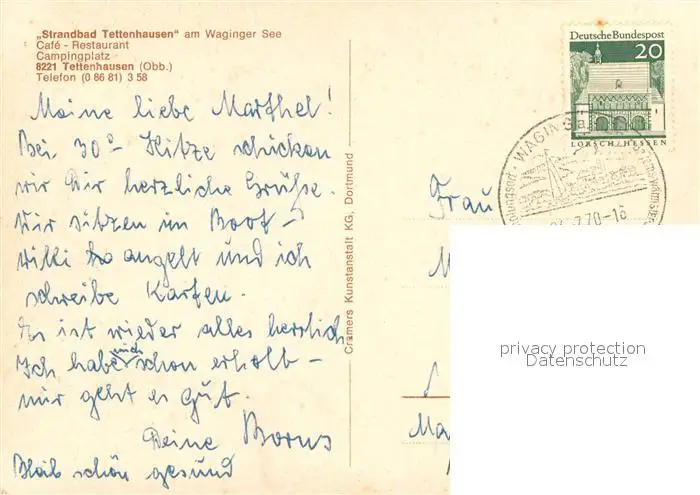 „Strandbad Tettenhausen" am Waginger See
Café - Restaurant
Campingplatz
8221 Tettenhausen (Obb.)
Telefon (0 86 81) 3 58
Meine liebe Marthel!
Bei 30° Hitze schicken
wir Dir herzliche Grüße.
Wir sitzen im Boot –
Willi angelt und ich
schreibe Karten.
Es ist wieder alles herrlich
Ich habe mich schon erholt –
mir geht es gut.
Deine
Bleib schön gesund
Cramers Kunstanstalt KG, Dortmund
Deutsche Bundespost
20
LORSCH/HESSEN
WAGING a.
7.70-16
Frau
Ma
privacy protection
Datenschutz